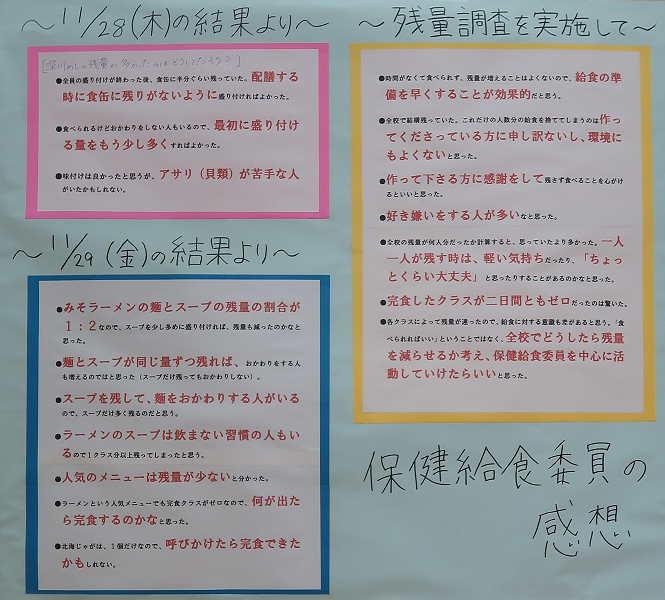 ～11/28(木)の結果より～
[深川めしの残量が多かったのはどうしてだろう？]
●全員の盛り付けが終わった後、食缶に半分ぐらい残っていた。配膳する
時に食缶に残りがないように盛り付ければよかった。
●食べられるけどおかわりをしない人もいるので、最初に盛り付け
る量をもう少し多くすればよかった。
●味付けは良かったと思うが、アサリ（貝類）が苦手な人
がいたかもしれない。
～11/29(金)の結果より～
●みそラーメンの麺とスープの残量の割合が
１：２なので、スープを少し多めに盛り付ければ、残量も減ったのかなと
思った。
●麺とスープが同じ量ずつ残れば、おかわりをする人
も増えるのではと思った（スープだけ残ってもおかわりしない）。
●スープを残して、麺をおかわりする人がいる
ので、スープだけ多く残るのだと思う。
●ラーメンのスープは飲まない習慣の人もい
るので１クラス分以上残ってしまったと思う。
●人気のメニューは残量が少ないと分かった。
●ラーメンという人気メニューでも完食クラスがゼロなので、何が出た
ら完食するのかなと思った。
●北海じゃがは、１個だけなので、呼びかけたら完食できた
かもしれない。
～残量調査を実施して～
●時間がなくて食べられず、残量が増えることはよくないので、給食の準
備を早くすることが効果的だと思う。
●全校で結構残っていた。これだけの人数分の給食を捨ててしまうのは作っ
てくださっている方に申し訳ないし、環境に
もよくないと思った。
●作って下さる方に感謝をして残さず食べることを心がけ
るといいと思った。
●好き嫌いをする人が多いなと思った。
●全校の残量が何人分だったか計算すると、思っていたより多かった。一人
一人が残す時は、軽い気持ちだったり、「ちょ
っとくらい大丈夫」と思ったりすることがあるのかなと思った。
●完食したクラスが二日間ともゼロだったのは驚いた。
●各クラスによって残量が違ったので、給食に対する意識も差があると思う。「食
べられればいい」ということではなく、全校でどうしたら残量
を減らせるか考え、保健給食委員を中心に活
動していけたらいいと思った。
保健給食委員の
感想